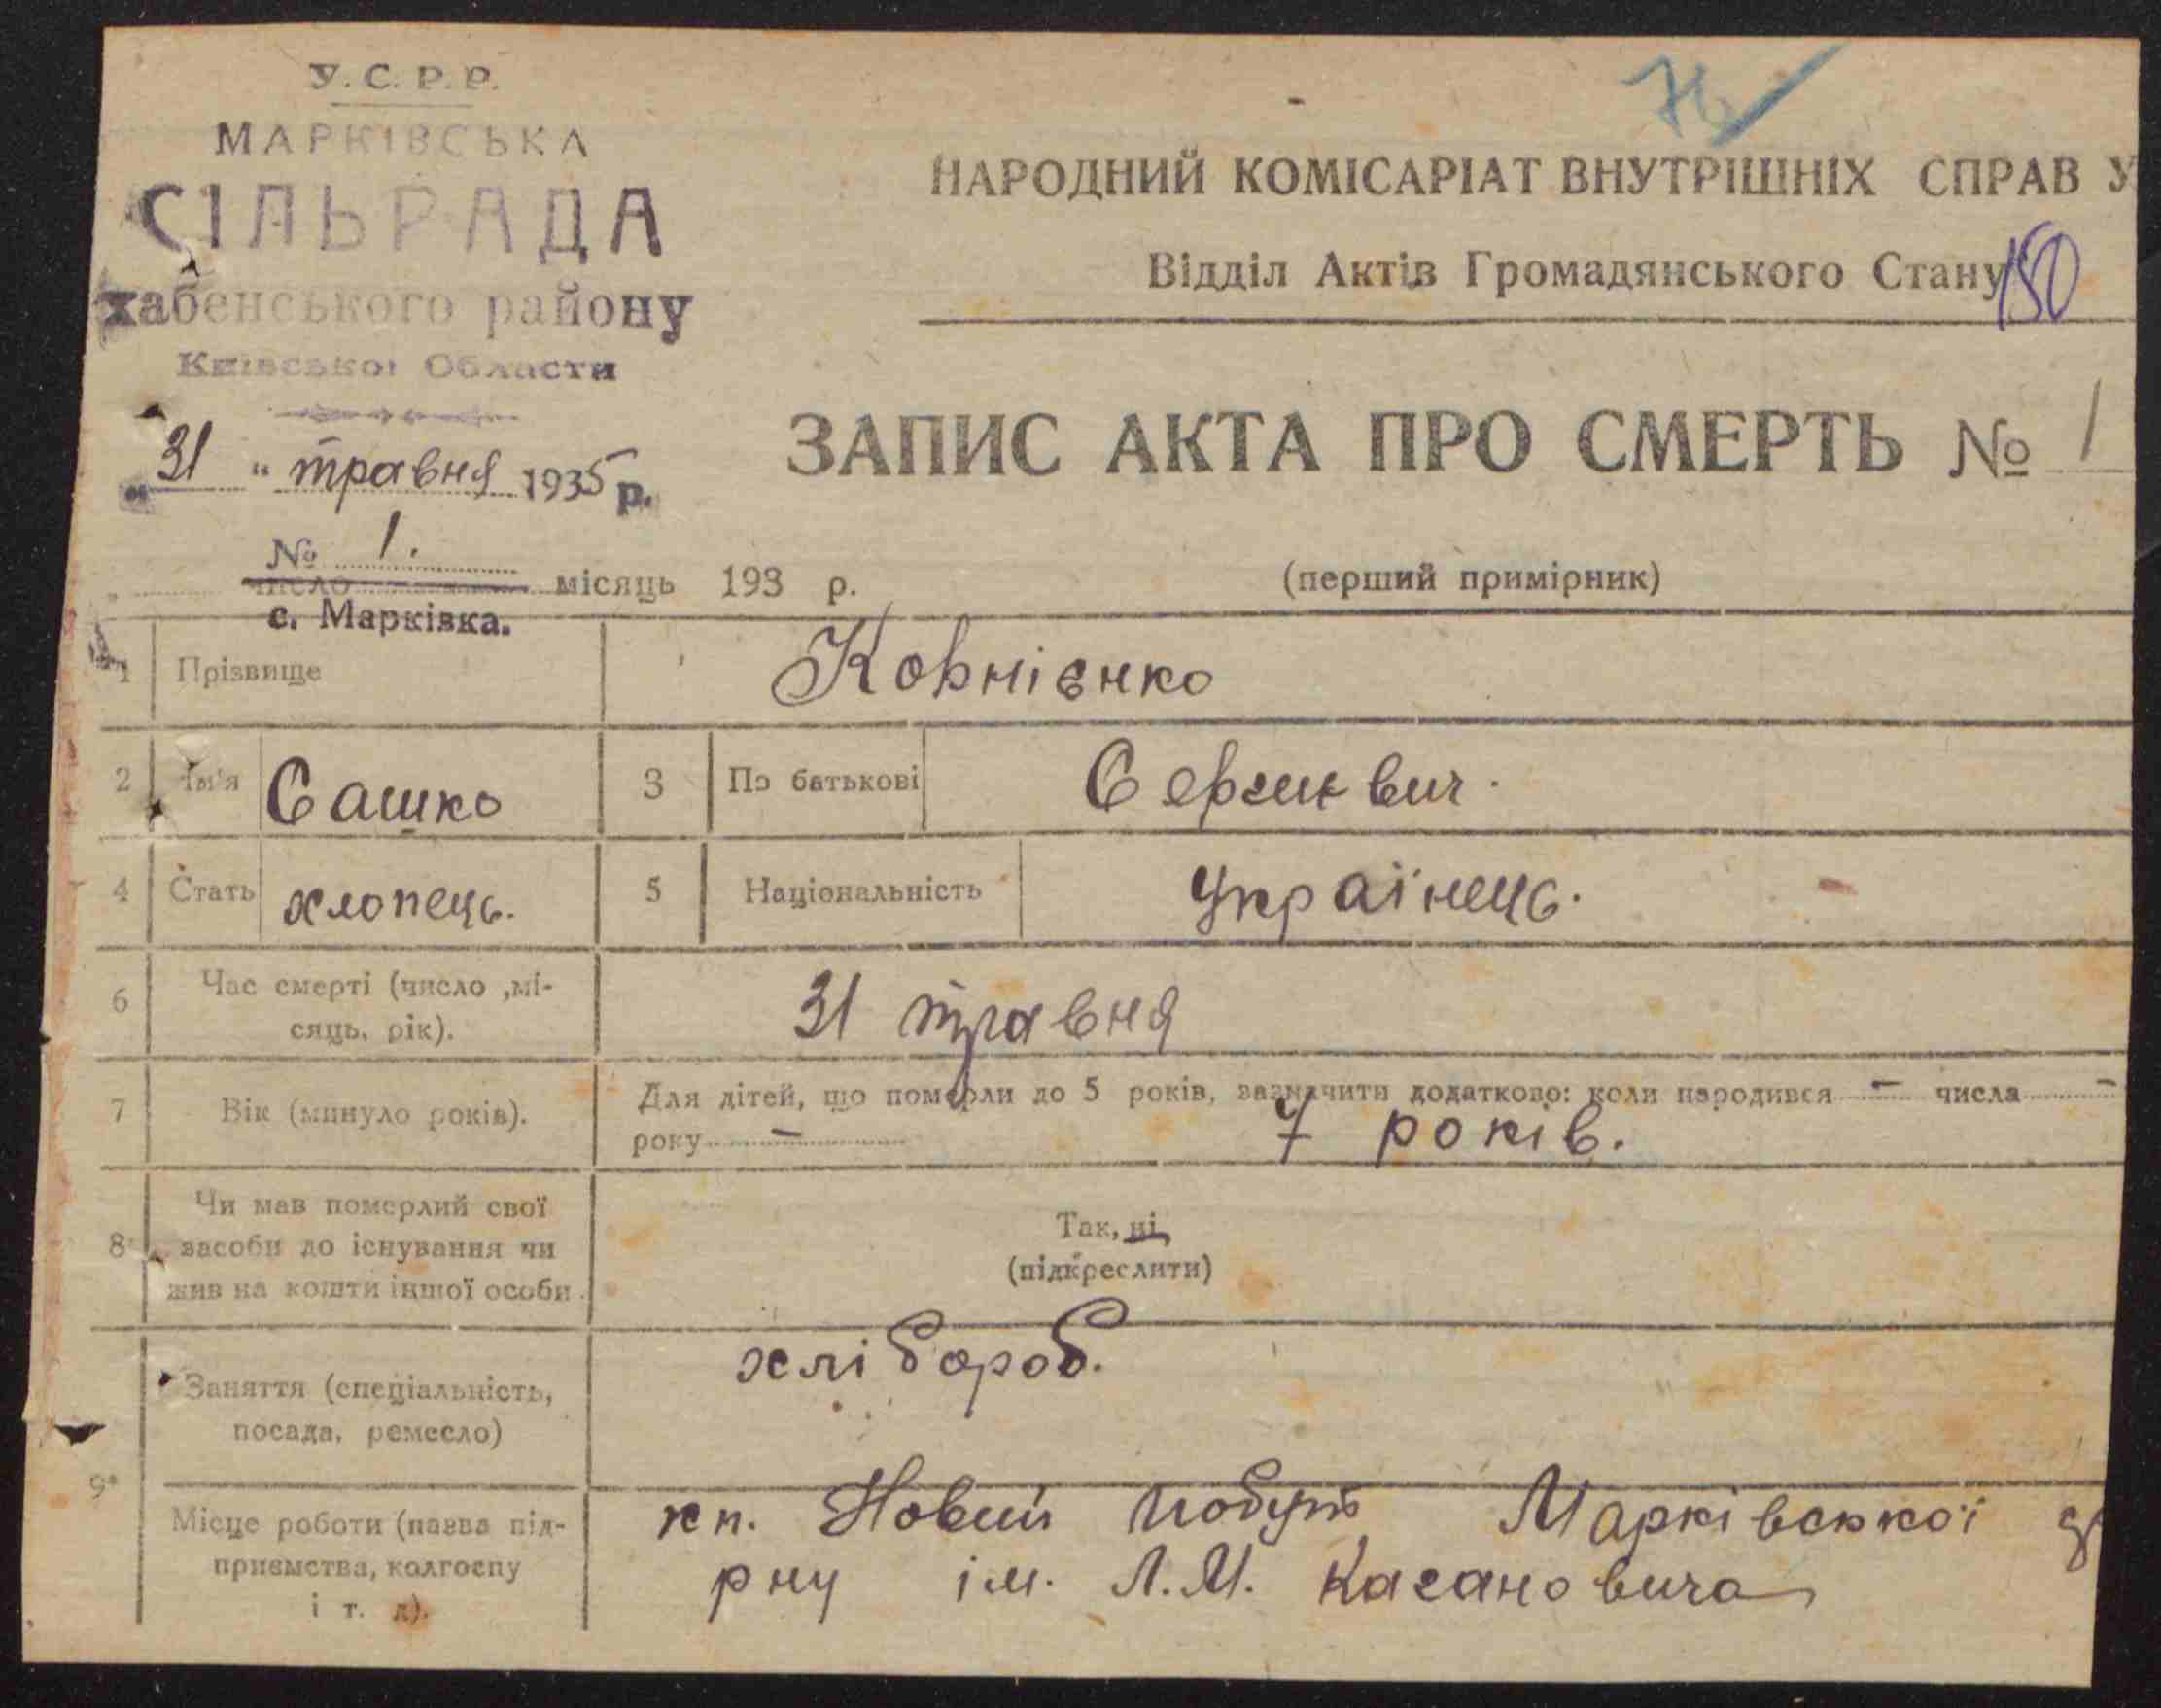 У.С.Р.Р.
МАРКІВСЬКА
СІЛЬРАДА
хабенського району
Київської Области
„31 “ травня 1935 р.
№ 1.
число місяць 193 р.
с. Марківка.
76
НАРОДНИЙ КОМІСАРІАТ ВНУТРІШНІХ СПРАВ У
Відділ Актів Громадянського Стану
150
ЗАПИС АКТА ПРО СМЕРТЬ № 1
(перший примірник)
1 Прізвище Ковнієнко
2 Ім'я Сашко 3 По батькові
4 Стать хлопець. 5 Національність Українець.
6 Час смерті (число ,мі-
сяць, рік). 31 травня
7 Вік (минуло років). Для дітей, що померли до 5 років, зазначити додатково: коли народився – числа –
року – 7 років.
8 Чи мав померлий свої
засоби до існування чи
жив на кошти іншої особи
Так, ні
(підкреслити)
9 Заняття (спеціальність,
посада, ремесло) хлібороб.
Місце роботи (назва під-
приємства, колгоспу
і т. д).
кп. Новий побут Марківської
рну ім. Л.М. Кагановича